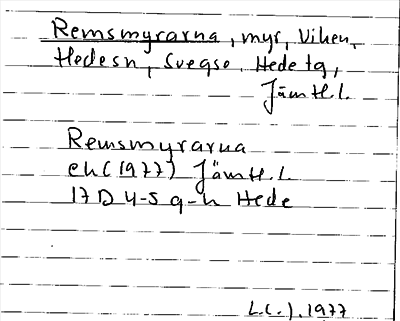 Remsmyrarna, myr, Viken,
Hedesn, Svegso, Hede tg,
Jämtl.l.
Remsmyrarna
ek (1977) Jämtl.l.
17D 4-5 g-h Hede
L.C.J. 1977